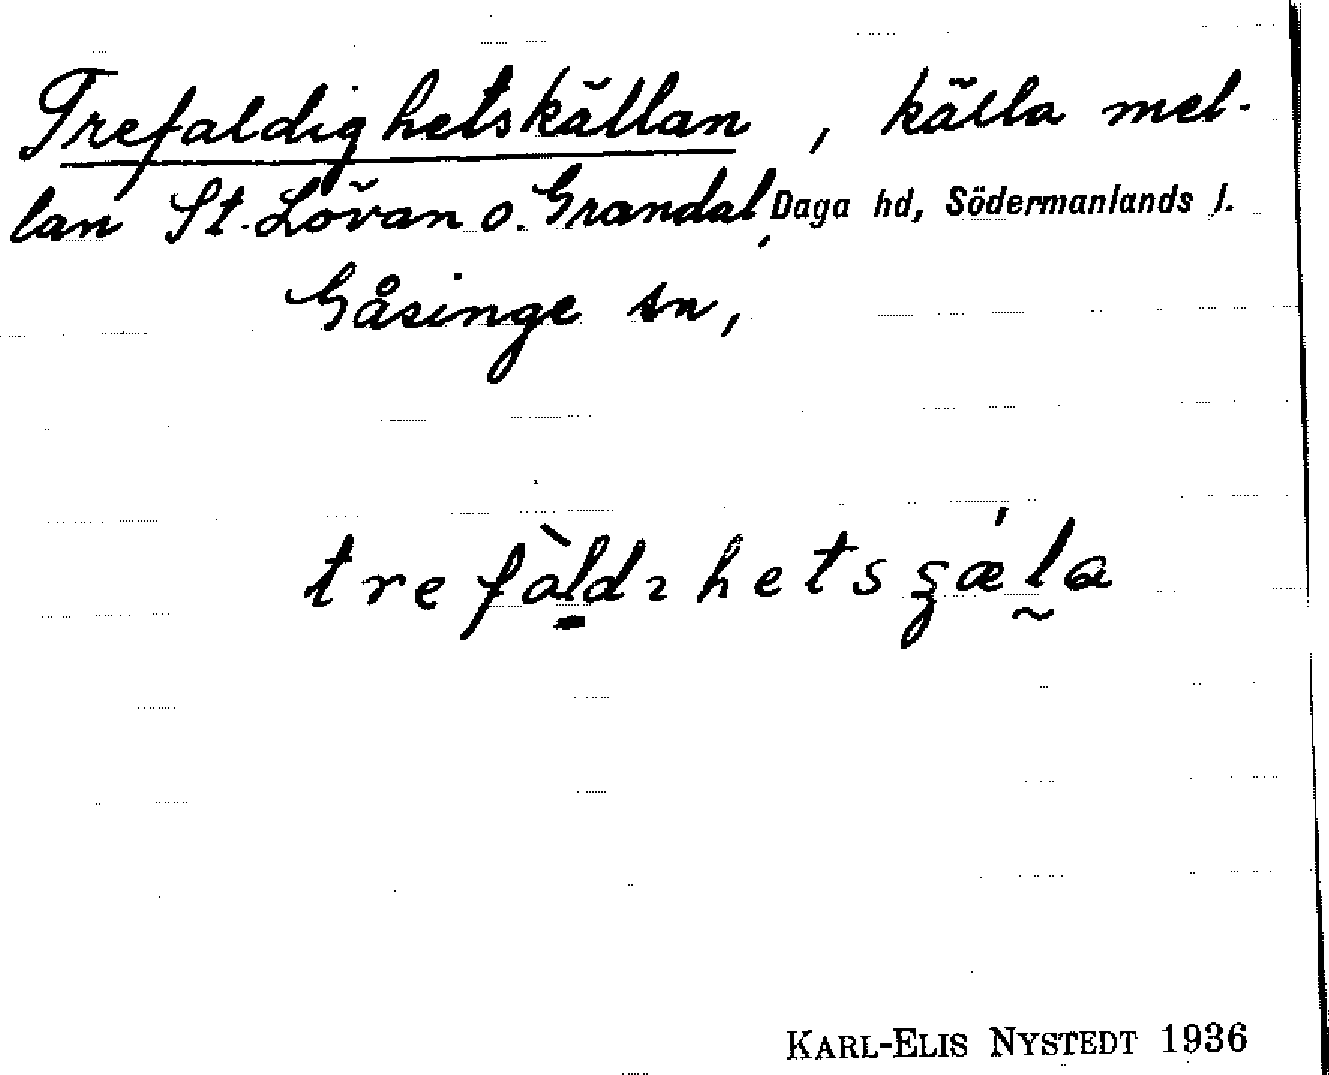 Trefaldighetskällan, källa mel-
lan St. Lövan o. Grandal, Daga hd, Södermanlands l.
Gåsinge sn,
trefàldıhetsȿǽla
KARL-ELIS NYSTEDT 1936